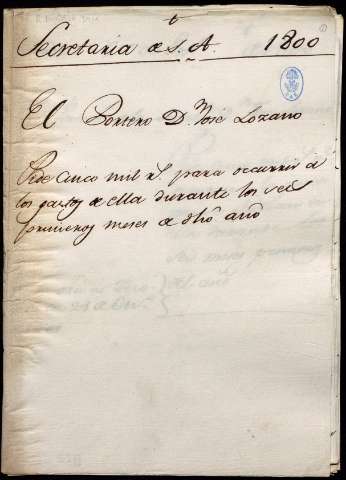 Secretaria de S. A. 1800
El Portero D. José Lozano
Pide cinco mil rs. para ocurrir á
los gastos de ella durante los seis
primeros meses de dho año